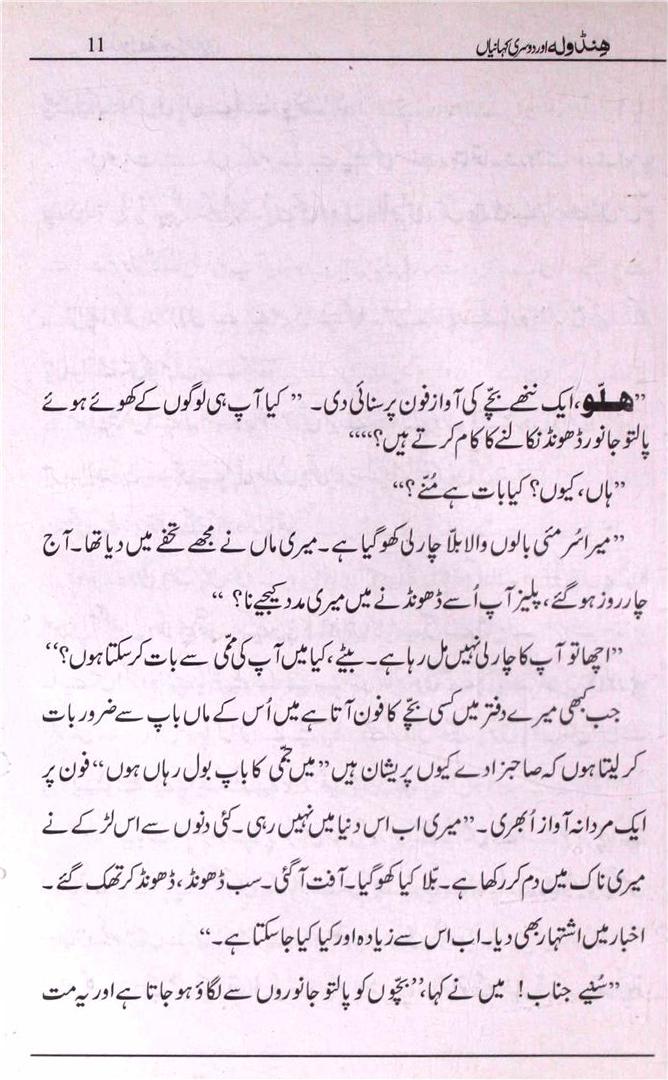 ہنڈولہ اور دوسری کہانیاں 11
”ہلّو، ایک ننھے بچّے کی آواز فون پر سنائی دی۔ ” کیا آپ ہی لوگوں کے کھوئے ہوئے
پالتو جانور ڈھونڈ نکالنے کا کام کرتے ہیں؟““
”ہاں، کیوں؟ کیا بات ہے مُنّے؟“
”میرا سُرمئی بالوں والا بلّا چارلی کھو گیا ہے۔ میری ماں نے مجھے تحفے میں دیا تھا۔ آج
چار روز ہو گئے، پلیز آپ اُسے ڈھونڈنے میں میری مدد کیجیے نا؟ “
”اچھا تو آپ کا چارلی نہیں مل رہا ہے۔ بیٹے، کیا میں آپ کی ممّی سے بات کر سکتا ہوں؟“
جب کبھی میرے دفتر میں کسی بچّے کا فون آتا ہے میں اُس کے ماں باپ سے ضرور بات
کر لیتا ہوں کہ صاحبزادے کیوں پریشان ہیں ”میں جمّی کا باپ بول رہاں ہوں“ فون پر
ایک مردانہ آواز اُبھری۔ ”میری اب اس دنیا میں نہیں رہی۔ کئی دنوں سے اس لڑکے نے
میری ناک میں دم کر رکھا ہے۔ بلّا کیا کھو گیا۔ آفت آ گئی۔ سب ڈھونڈ، ڈھونڈ کر تھک گئے۔
اخبار میں اشتہار بھی دیا۔ اب اس سے زیادہ اور کیا کیا جا سکتا ہے۔“
”سُنیے جناب! میں نے کہا،”بچّوں کو پالتو جانوروں سے لگاؤ ہو جاتا ہے اور یہ مت